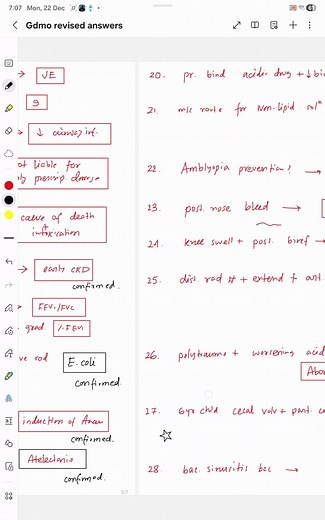 7:07 Mon, 22 Dec
Gdmo revised answers
→ VE
9
↓ airway inf.
not liable for
presscrip. damage
cause of death
intoxication
→ early CKD
confirmed.
→ FEV1/FVC
grad. % FEV1
ve rod E. coli
confirmed
induction of
confirmed.
Atelectasis
confirmed.
20. pr. bind acidic drug + ↓
21. m/c route for Non-lipid sol
22. Amblyopia prevention? →
23. post. nose bleed →
24. knee swell + post.
25. dist. rad # + extend +
26. polytrauma + worsening acid
Abd
27. 6yr child cecal volv +
28. bac. sinusitis bcc →